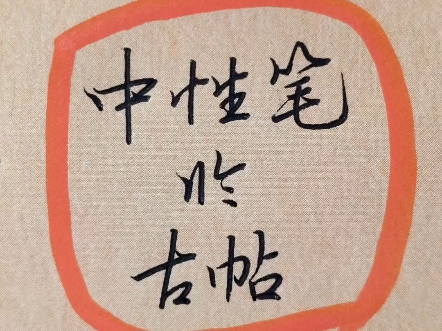 中性笔
临
古帖